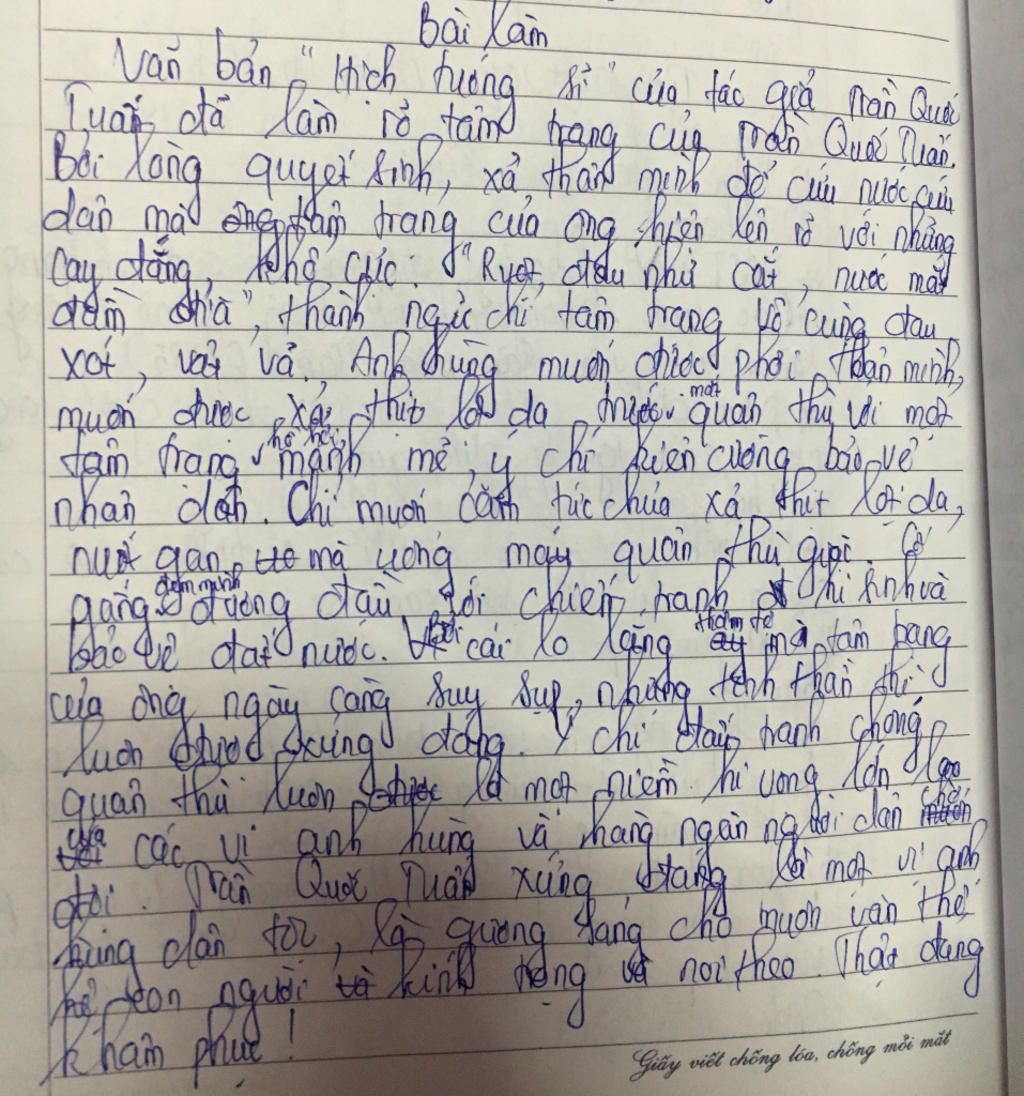 Bài làm
Văn bản "Hịch tướng sĩ" của tác giả Trần Quốc
Tuấn đã làm rõ tâm trạng của Trần Quốc Tuấn.
Bởi lòng quyết sinh, xả thân mình để cứu nước cứu
dân mà tâm trạng của ông hiện lên rõ với những
cay đắng, khổ cực: "Ruột đau như cắt, nước mắt
đầm đìa", thành ngữ chỉ tâm trạng vô cùng đau
xót, vất vả. Anh hùng muốn được phơi thân mình,
muốn được xả thịt lột da một quân thù với một
tâm trạng mạnh mẽ, ý chí kiên cường bảo vệ
nhân dân. Chỉ muốn căm tức chưa xả thịt lột da,
nuốt gan mà uống máu quân thù giặc. Cố
gắng đem mình đương đầu với chiến tranh hi sinh và
bảo vệ đất nước. Bởi cái lo lắng thảm tê mà tâm trạng
của ông ngày càng suy sụp, nhưng tinh thần thì
luôn xứng đáng. Ý chí đấu tranh chống
quân thù luôn là một niềm hi vong lớn lao
của các vị anh hùng và hàng ngàn người dân chờ
đợi. Trần Quốc Tuấn xứng đáng là một vị anh
hùng dân tộc, là gương sáng cho muôn vàn thế
hệ con người kính trọng noi theo. Thật đáng
khâm phục!
Giấy viết chống lóa, chống mỏi mắt